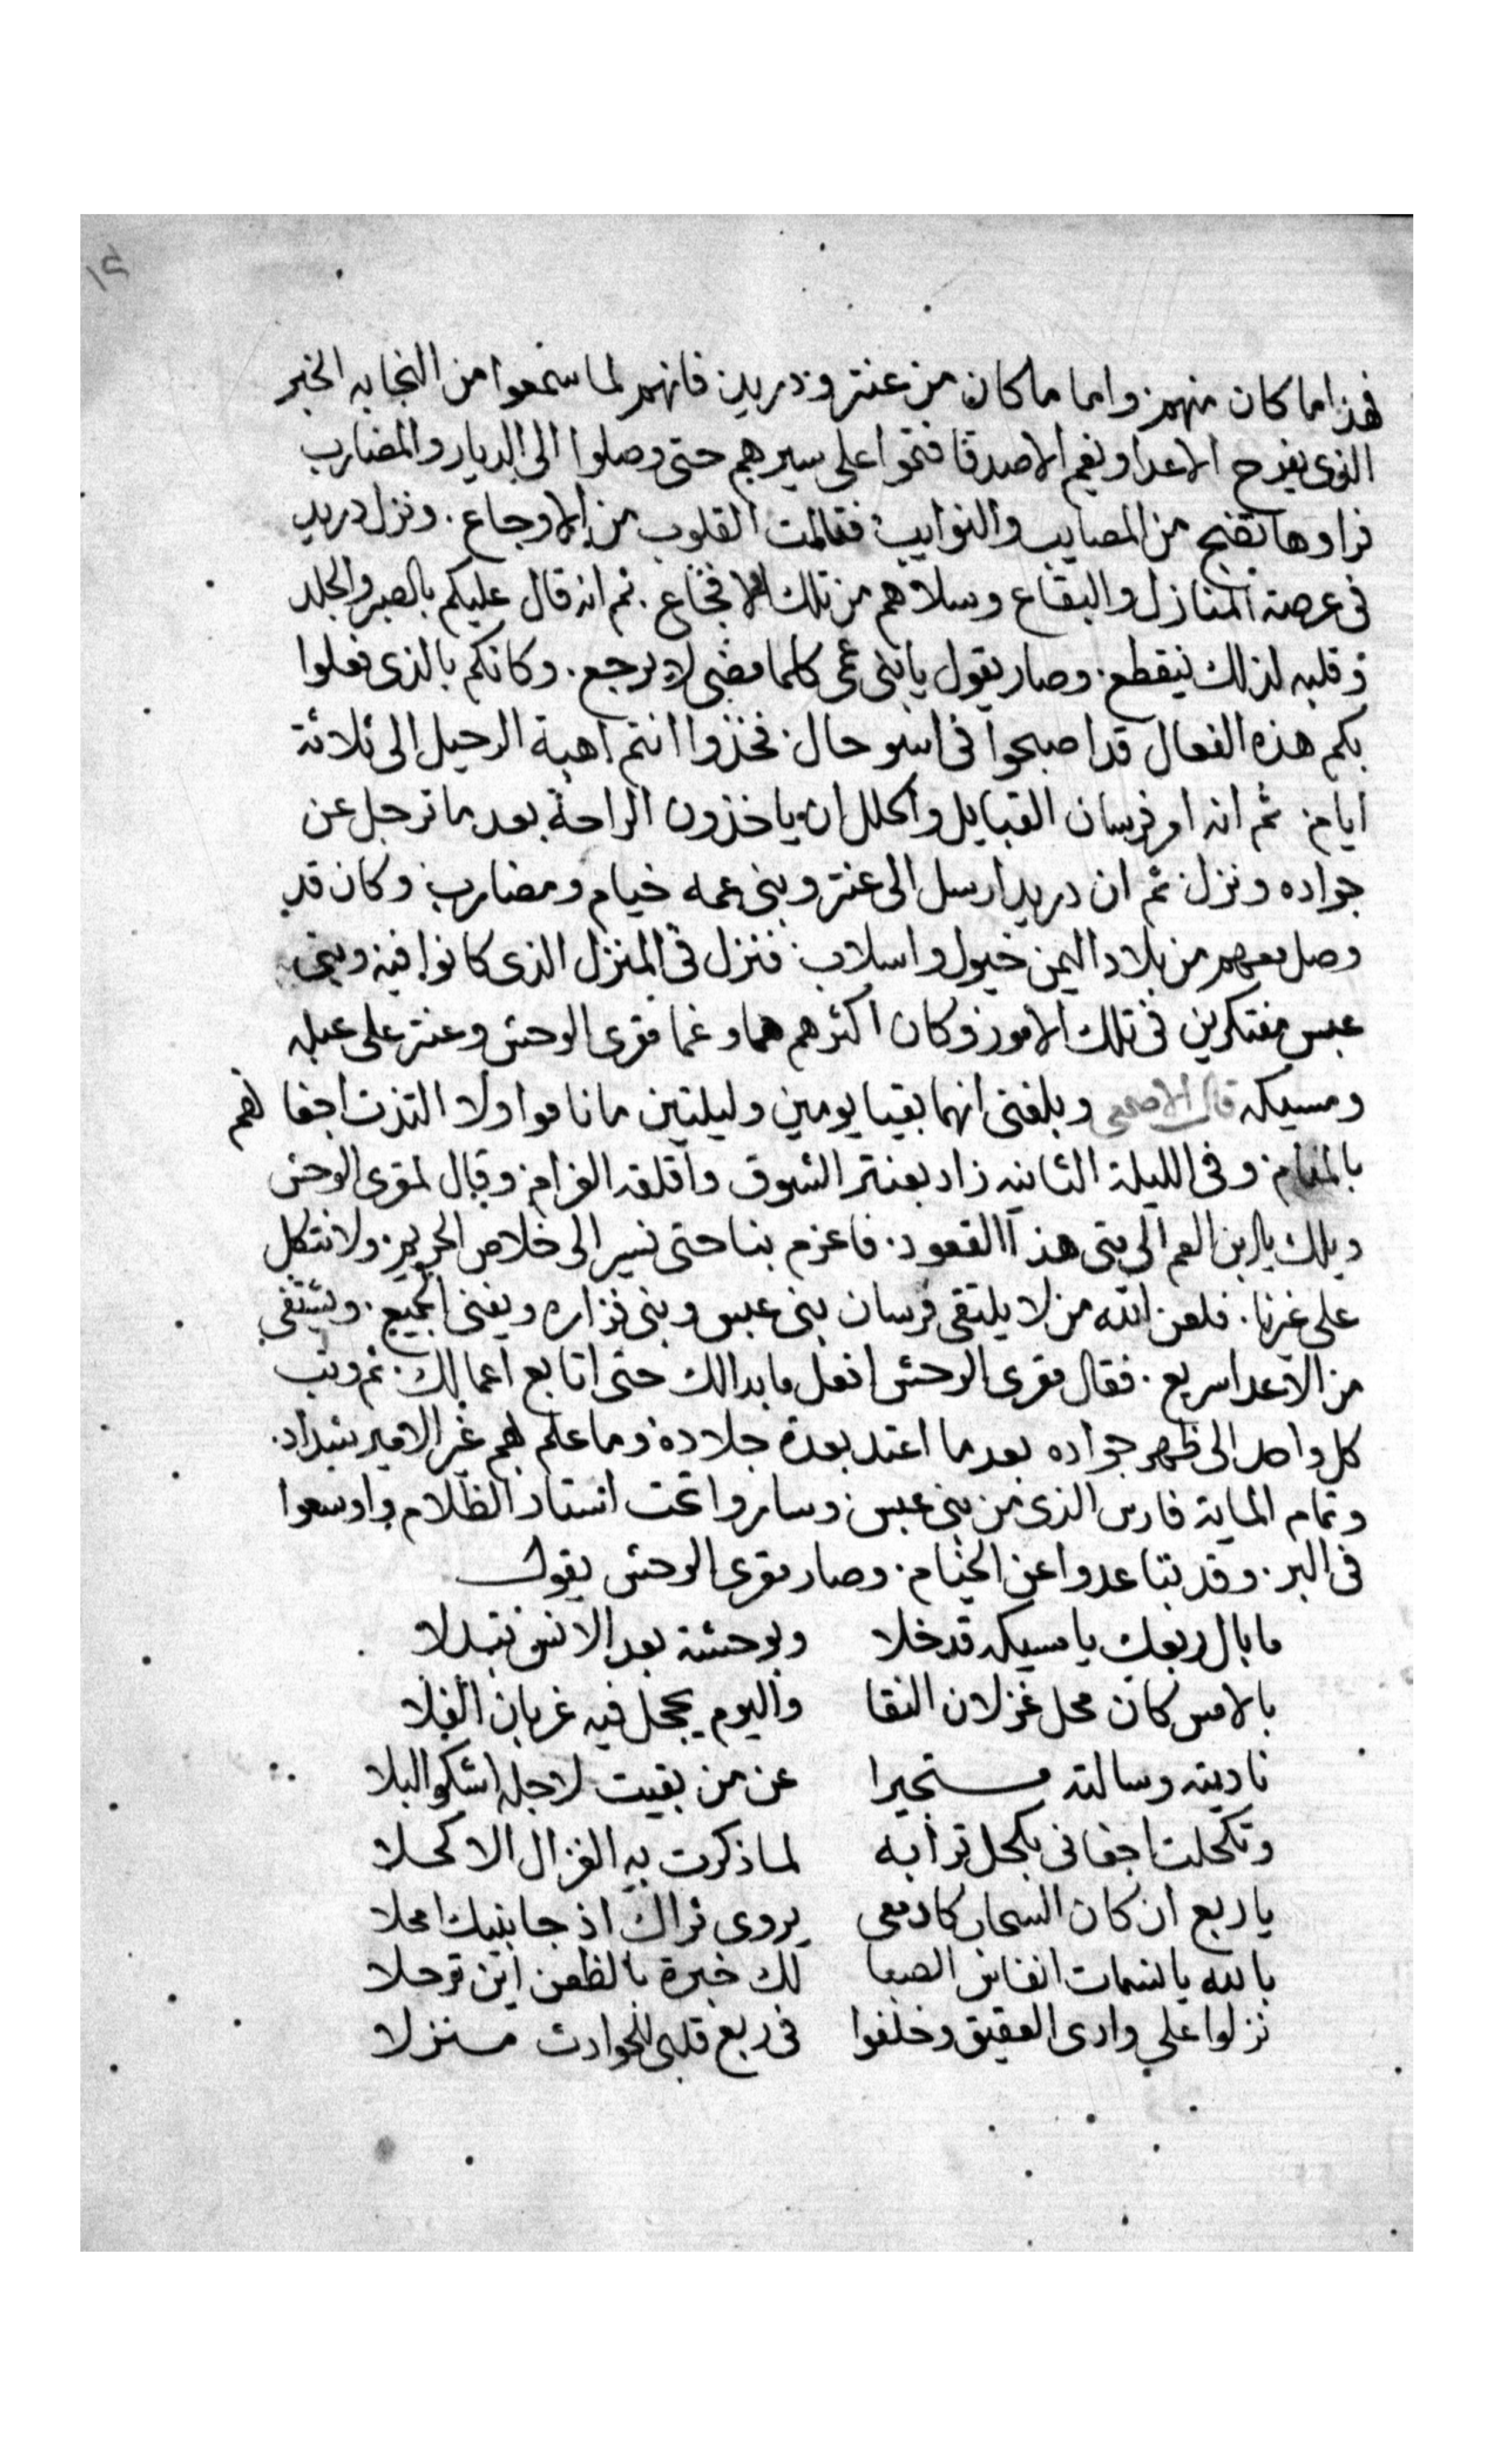 ١٢
فهذا ما كان منهم واما ما كان من عنتر ودريد فانهم لما سمعوا من النجابه الخبر
الذى يفرح الاعدا ويغم الاصدقا فتموا على سيرهم حتى وصلوا الى الديار والمضارب
فراوها تضج من المصايب والنوايب فتالمت القلوب من الاوجاع. ونزل دريد
فى عرصة المنازل والبقاع وسلاهم من تلك الافجاع. ثم انه قال عليكم بالصبر والجلد
وقلبه لذلك يتقطع. وصار يقول يا بنى عمى كلما مضى لا يرجع. وكانكم بالذى فعلوا
بكم هذه الفعال قد اصبحوا فى اسو حال. فخذوا انتم اهبة الرحيل الى ثلاثة
ايام ثم انه امر فرسان القبايل والحلل ان ياخذون الراحة بعد ما ترجل عن
جواده ونزل ثم ان دريد ارسل الى عنتر وبنى عمه خيام ومضارب وكان قد
وصل معهم من بلاد اليمن خيول واسلاب فنزل فى المنزل الذى كانوا فيه وبنى
عبس مفتكرين فى تلك الامور وكان اكثرهم هما وغما مقرى الوحش وعنتر على عبله
ومسيكه قال الاصمعى وبلغنى انهما بقيا يومين وليلتين ما ناموا ولا التذت اجفانهم
بالمنام وفى الليلة الثانيه زاد بعنتر الشوق واقلقه الغرام وقال لمقرى الوحش
ويلك يا ابن العم الى متى هذا القعود. فاعزم بنا حتى نسير الى خلاص الحريم. ولا نتكل
على غيرنا. فلعن الله من لا يلتقى فرسان بنى عبس وبنى فزاره ويفنى الجميع. ويشتفى
من الاعدا سريع. فقال مقرى الوحش افعل ما بدالك حتى اتابع اعمالك. ثم وثب
كل واحد الى ظهر جواده بعد ما اعتد بعدة جلاده وما علم بهم غير الامير شداد.
وتمام الماية فارس الذى من بنى عبس وساروا تحت استار الظلام واوسعوا
فى البر. وقد تباعدوا عن الخيام. وصار مقرى الوحش يقول
ما بال ربعك يا مسيكه قد خلا وبوحشة بعد الانس تبدلا
بالامس كان محل غزلان النقا واليوم يحجل فيه غربان الفلا
ناديته وسالته مستجيرا عن من بقيت لاجله اشكو البلا
وتكحلت اجفانى بكحل ترابه لما ذكرت به الغزال الاكحلا
يا ربع ان كان السحاب كادمعى يروى ثراك اذ جانبيك امحلا
بالله يا نسمات انفاس الصبا لك خبرة بالظعن اين ترحلا
نزلوا على وادى العقيق وخلفوا فى ربع قلبى للحوادث منزلا